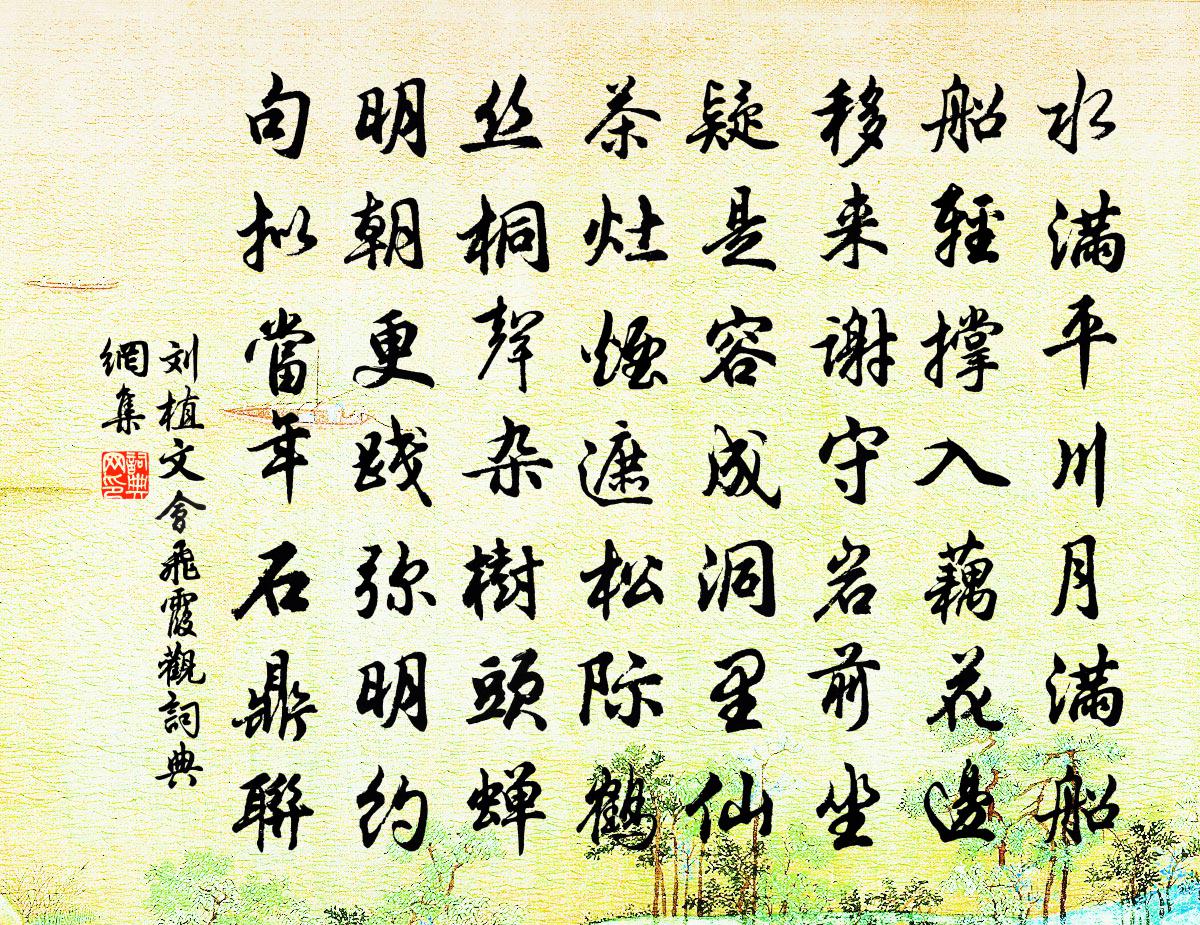 水满平川月满船
船轻撑入藕花邊
移来谢守岩前坐
疑是容成洞里仙
茶灶煙遮松际鹤
丝桐聲杂樹頭蝉
明朝更践弥明约
句拟當年石鼎聯
刘植文會飛霞觀詞典
網集
詞典网